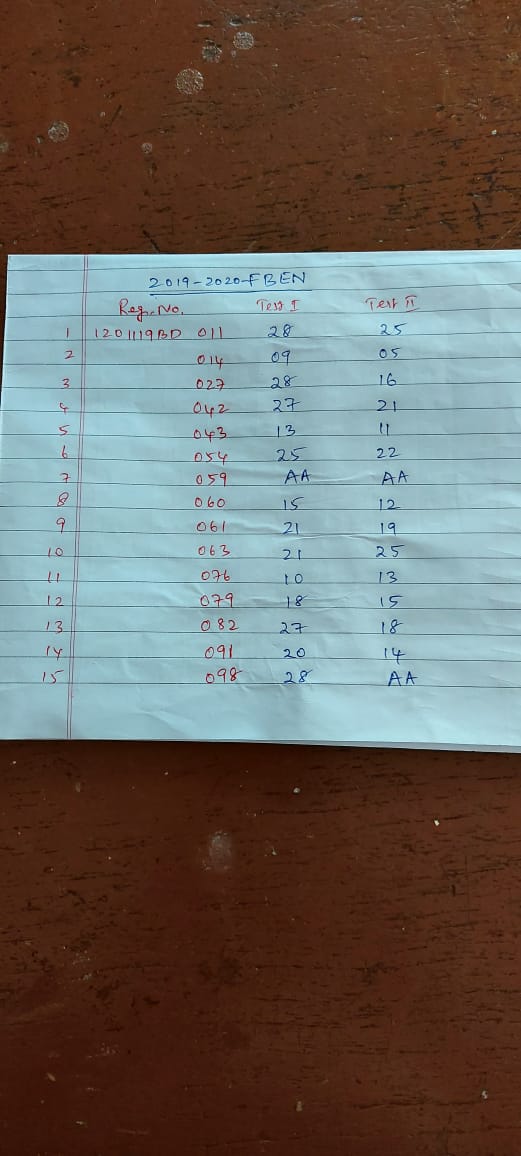 2019-2020-FBEN
Reg. No. Test I Test II
1 1201119BD 011 28 25
2 014 09 05
3 027 28 16
4 042 27 21
5 043 13 11
6 054 25 22
7 059 AA AA
8 060 15 12
9 061 21 19
10 063 21 25
11 076 10 13
12 079 18 15
13 082 27 18
14 091 20 14
15 098 28 AA